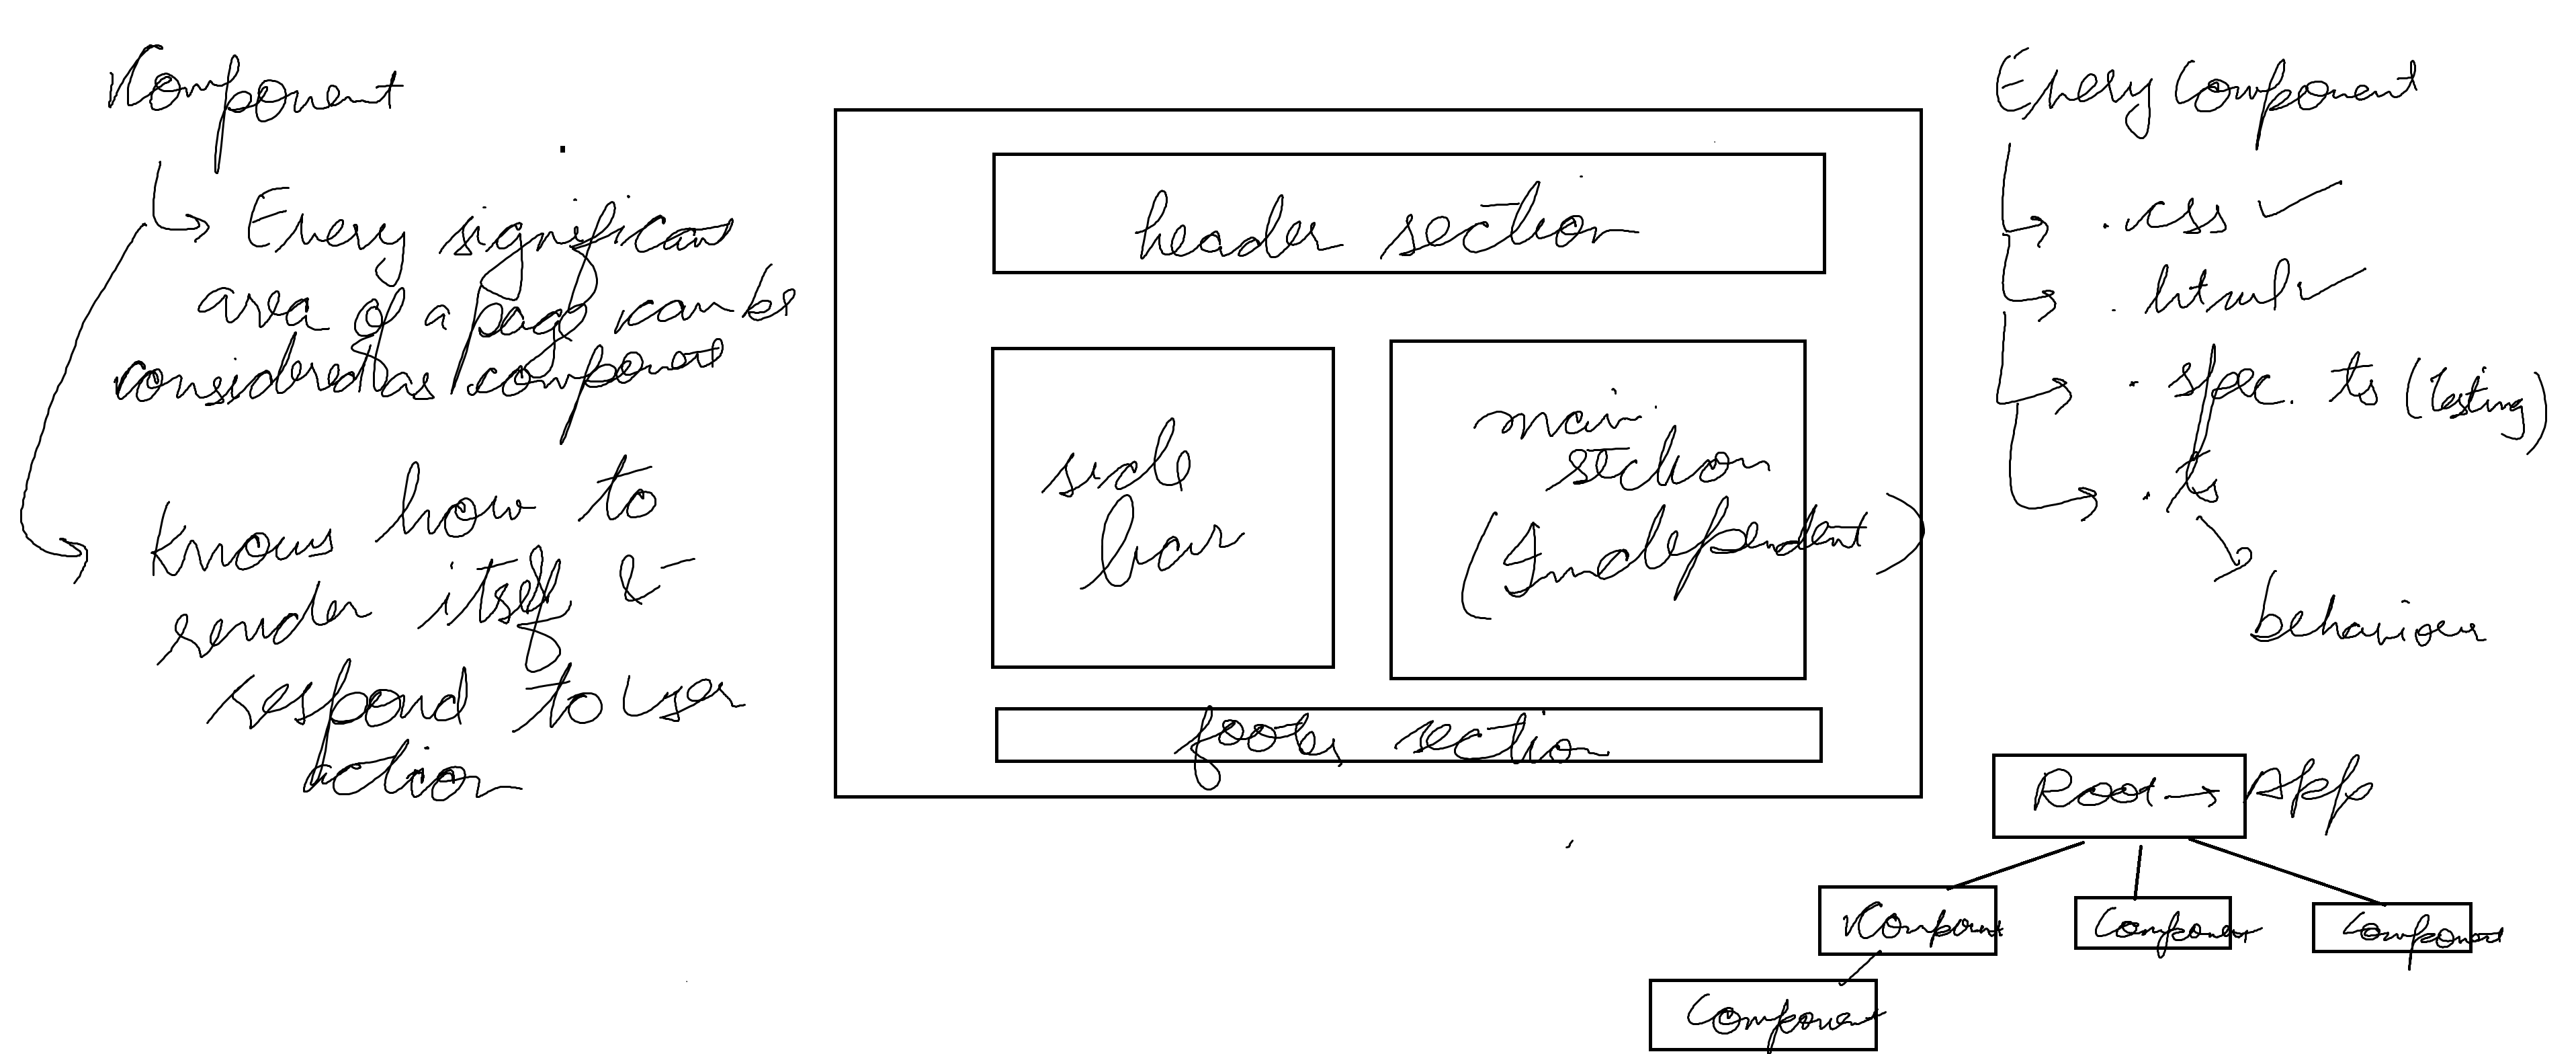 Component
Every significant
area of a page can be
considered as component
Knows how to
render itself &
respond to user
action
header section
side
bar
main
section
(Independent)
footer section
Every Component
.css ✓
.html ✓
.spec.ts (testing)
.ts
behaviour
Root → App
Component
Component
Component
Component